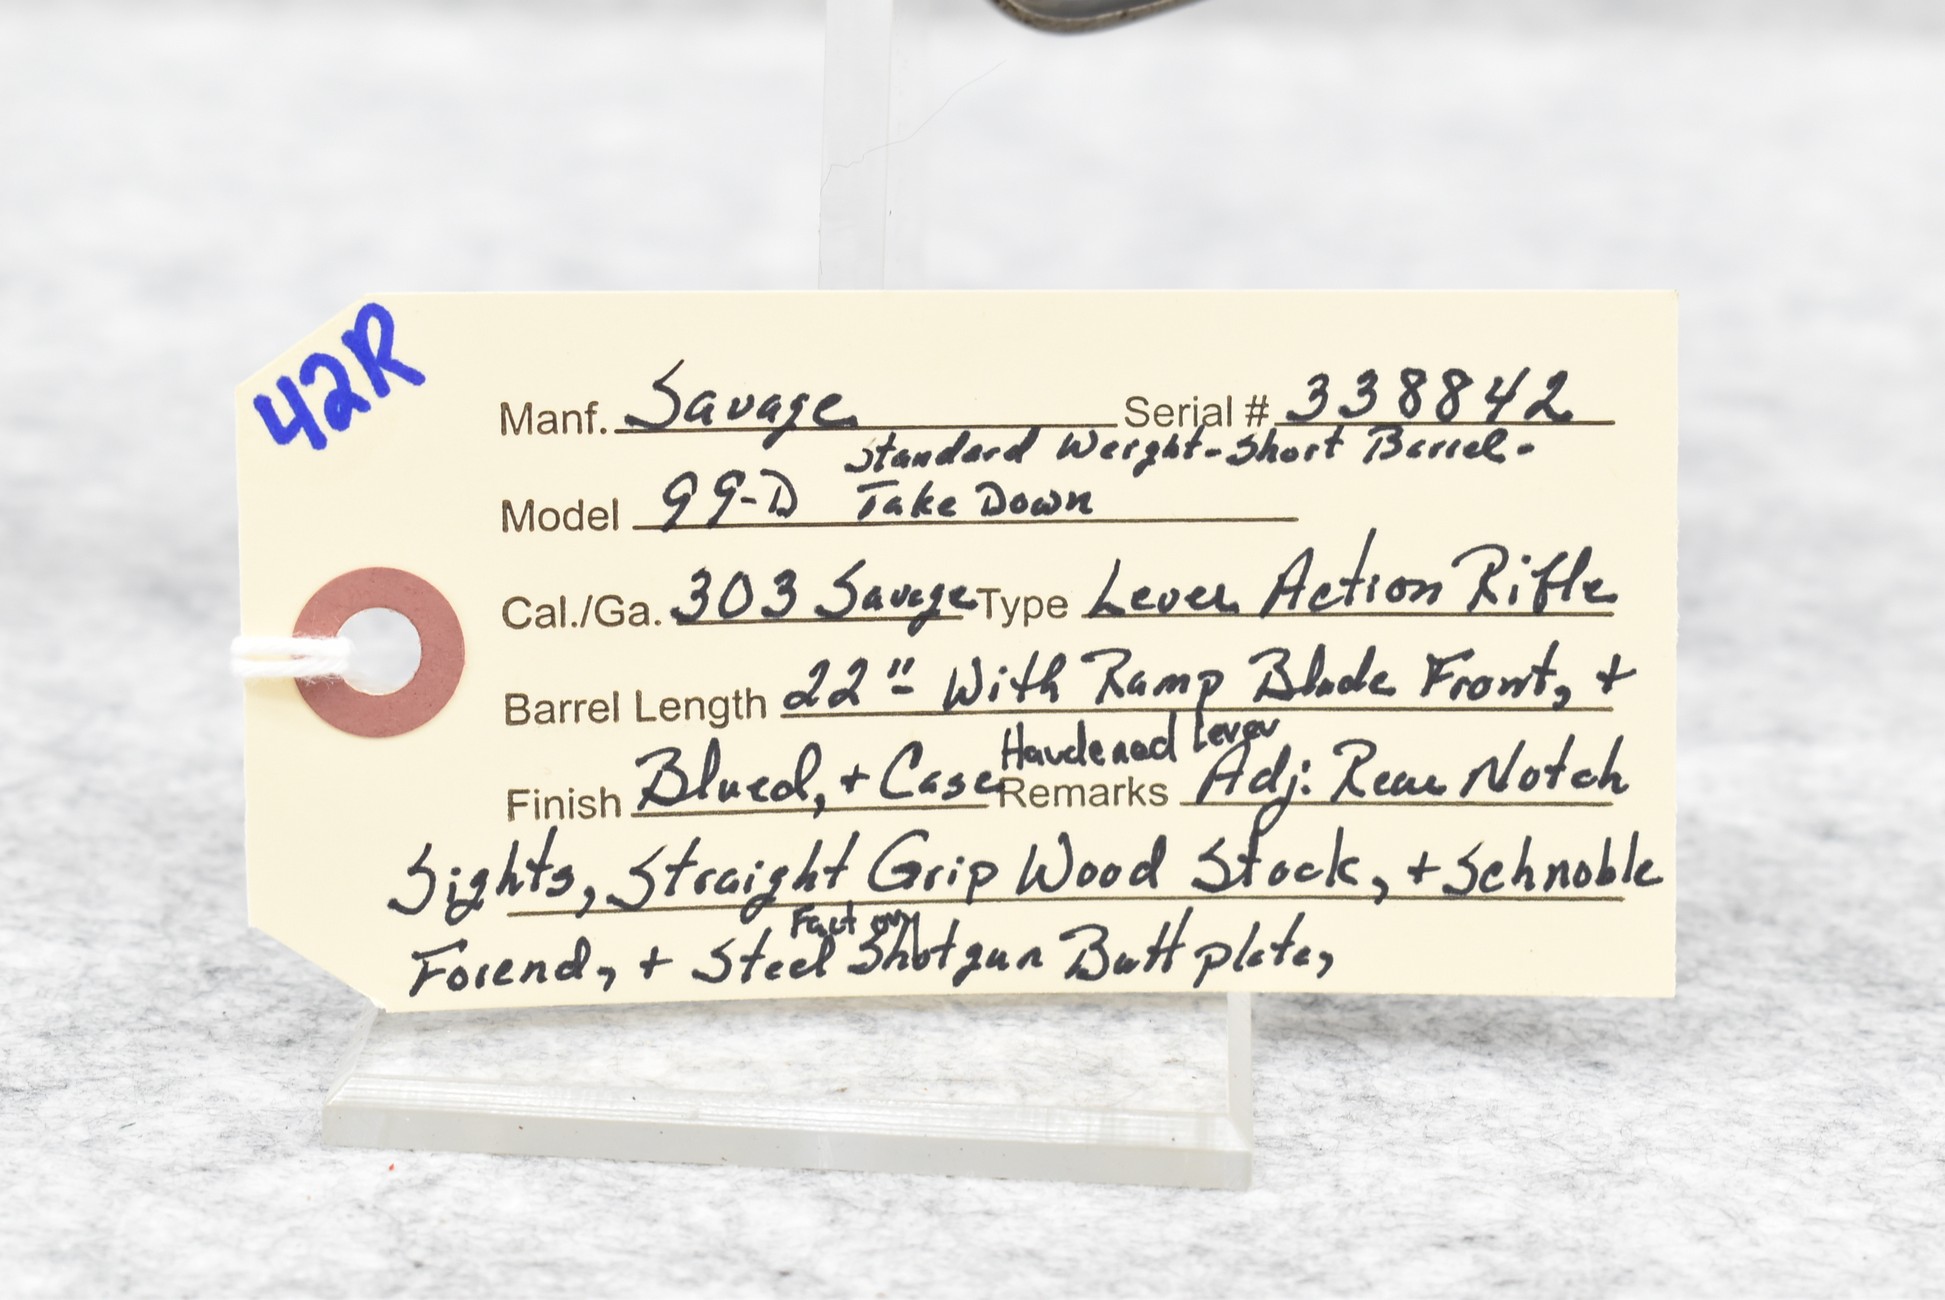 42R
Manf. Savage Serial # 338842
Standard Weight-Short Barrel-
Model 99-D Take Down
Cal./Ga. 303 Savage Type Lever Action Rifle
Barrel Length 22" With Ramp Blade Front, +
Hardened Lever
Finish Blued, + Case Remarks Adj: Rear Notch
Sights, Straight Grip Wood Stock, + Schnoble
Factory
Forend, + Steel Shotgun Buttplate,